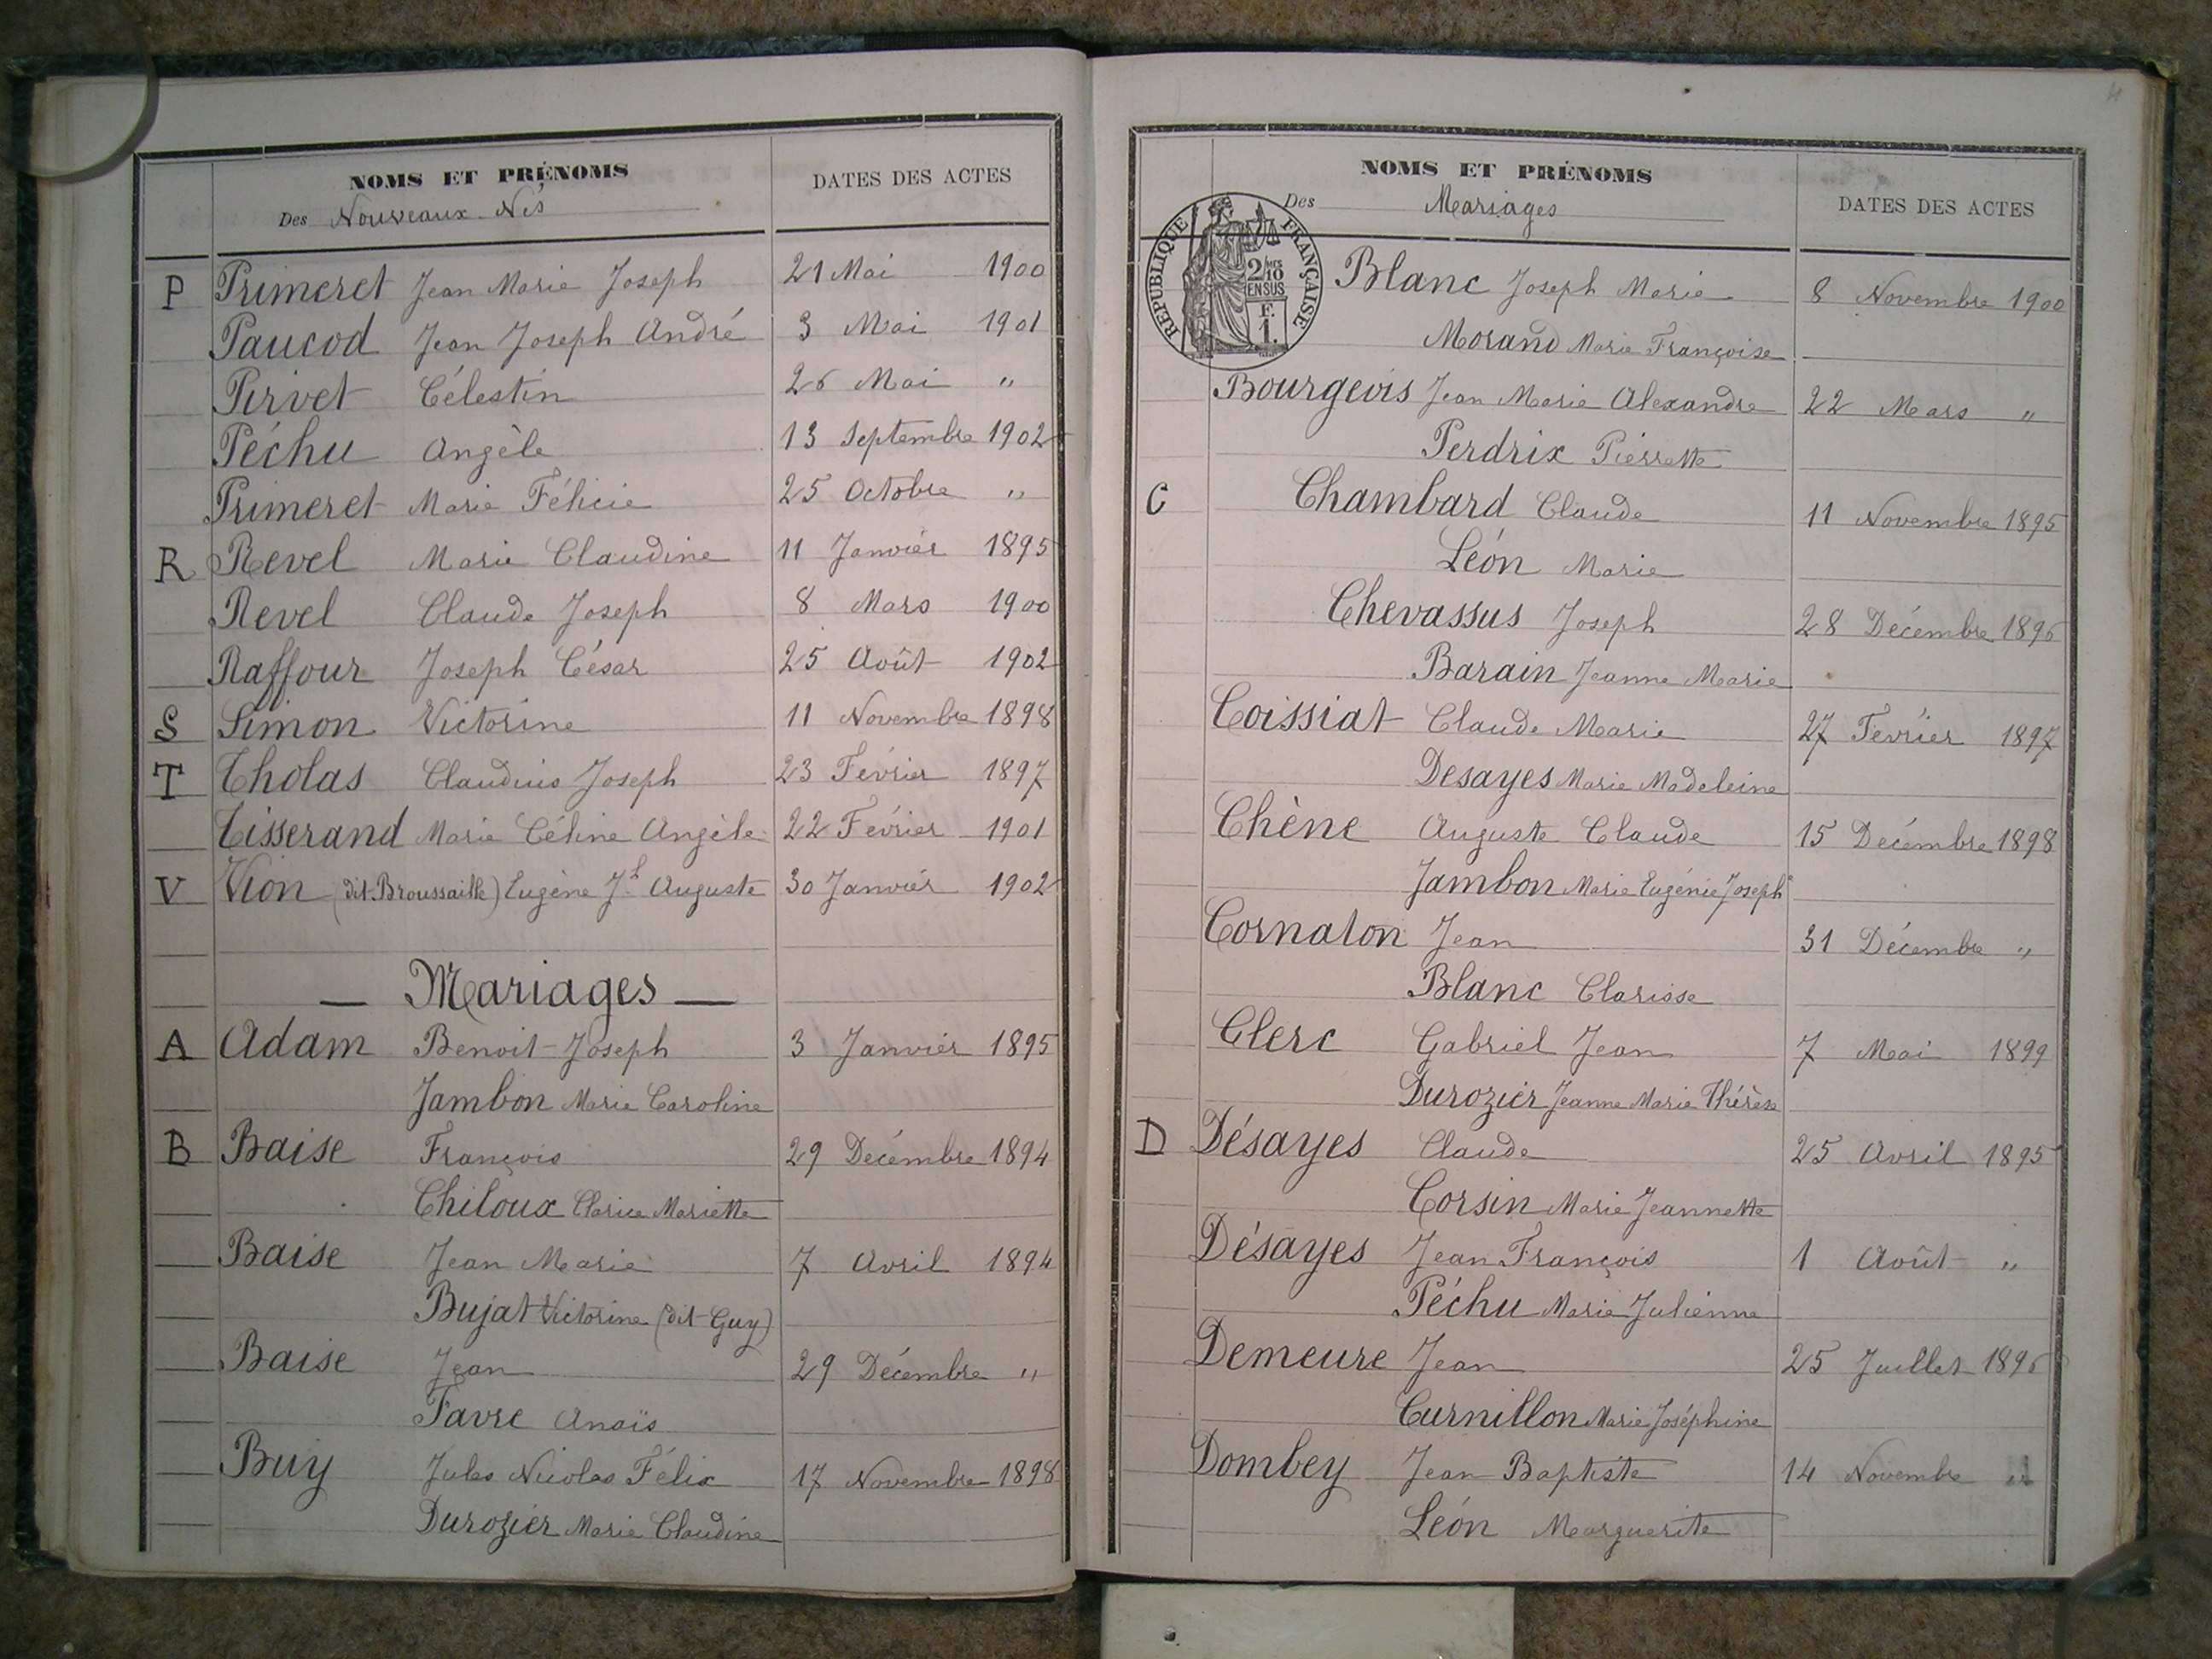 NOMS ET PRÉNOMS
DATES DES ACTES
Des Nouveaux-Nés
P Primeret Jean Marie Joseph 21 Mai 1900
Paucod Jean Joseph André 3 Mai 1901
Pirvet Célestin 26 Mai "
Péchu Angèle 13 Septembre 1902
Primeret Marie Félicie 25 Octobre "
R Revel Marie Claudine 11 Janvier 1895
Revel Claude Joseph 8 Mars 1900
Raffour Joseph César 25 Août 1902
S Simon Victorine 11 Novembre 1898
T Tholas Claudius Joseph 23 Février 1897
Tisserand Marie Céline Angèle 22 Février 1901
V Vion (dit Broussaille) Eugène Jh Auguste 30 Janvier 1902
— Mariages —
A Adam Benoit Joseph 3 Janvier 1895
Jambon Marie Caroline
B Baise François 29 Décembre 1894
Chiloux Clarice Mariette
Baise Jean Marie 7 Avril 1894
Bujat Victorine (dit Guy)
Baise Jean 29 Décembre "
Favre Anaïs
Buiy Jules Nicolas Félix 17 Novembre 1898
Durozier Marie Claudine
NOMS ET PRÉNOMS
DATES DES ACTES
Des Mariages
RÉPUBLIQUE FRANÇAISE
2/10
EN SUS
F.
1.
Blanc Joseph Marie 8 Novembre 1900
Morand Marie Françoise
Bourgeois Jean Marie Alexandre 22 Mars "
Perdrix Pierrette
C Chambard Claude 11 Novembre 1895
Léon Marie
Chevassus Joseph 28 Décembre 1896
Barain Jeanne Marie
Coissiat Claude Marie 27 Février 1897
Desayes Marie Madeleine
Chêne Auguste Claude 15 Décembre 1898
Jambon Marie Eugénie Josephe
Cornaton Jean 31 Décembre "
Blanc Clarisse
Clerc Gabriel Jean 7 Mai 1899
Durozier Jeanne Marie Thérèse
D Désayes Claude 25 Avril 1895
Corsin Marie Jeannette
Désayes Jean François 1 Août "
Péchu Marie Julienne
Demeure Jean 25 Juillet 1896
Curnillon Marie Joséphine
Dombey Jean Baptiste 14 Novembre "
Léon Marguerite